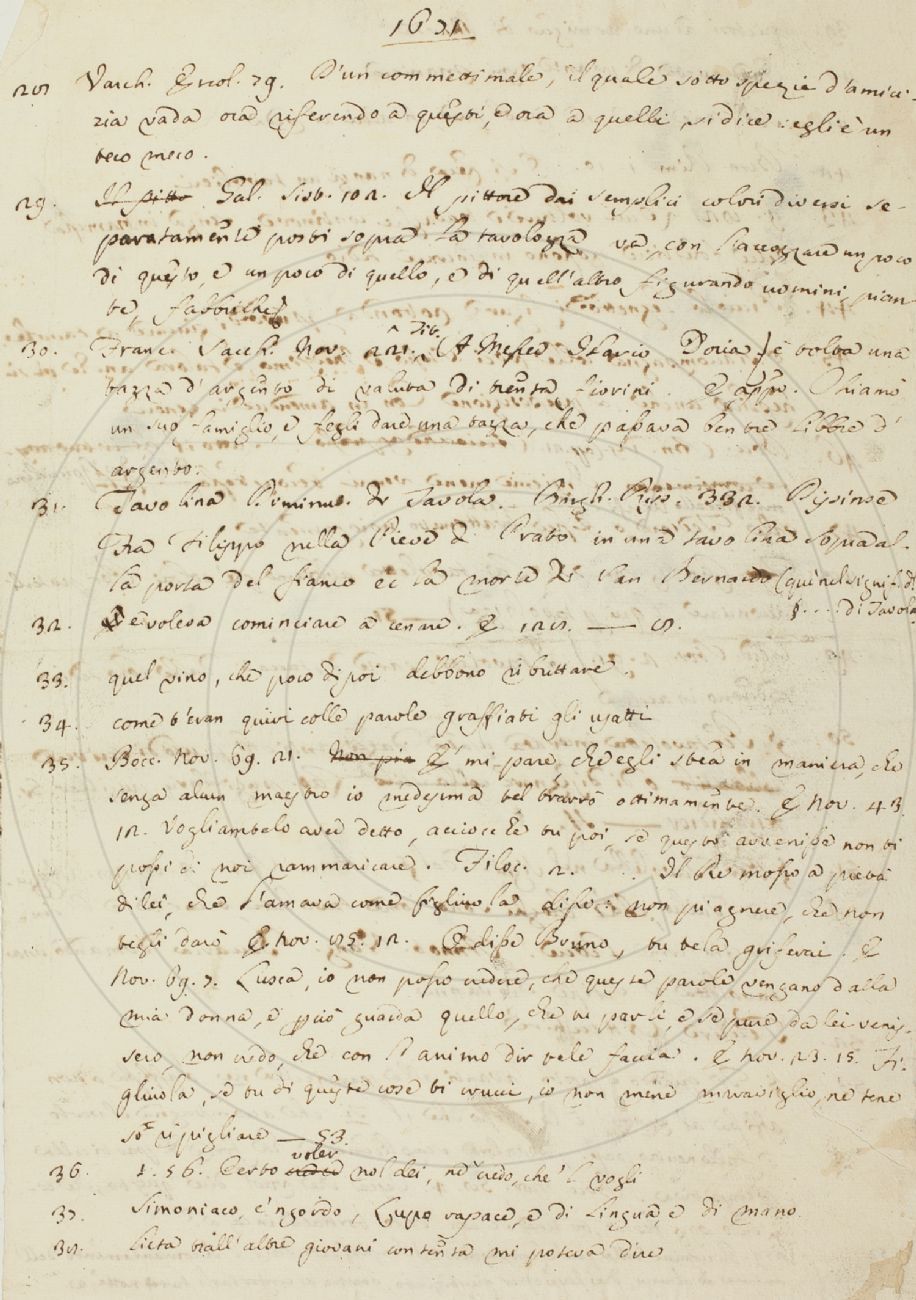 1671
28 Varch. Ercol. 79. D'un commettimale, il quale sotto spezie d'amici-
zia vada ora riferendo a questi, e ora a quelli, si dice: egli è un
teco meco.
29. Il pitto Gal. Sist. 102. Il pittore dai semplici colori diversi se-
paratamente posti sopra la tavolozza va, con l'accozzare un poco
di questo, e un poco di quello, e di quell'altro figurando uomini, pian-
te, fabbriche
30. Franc. Sacch. Nov. 221. Tit. (A Messer Ilario Doria) è tolta una
tazza d'argento di valuta di trenta fiorini. E appr. Chiamò
un suo famiglio, e fegli dare una tazza, che passava ben tre libbre d'
argento.
31. Tavolina Diminut. di Tavola. Borgh. Rip. 332. Dipinse
Fra Filippo nella Pieve di Prato in una tavolina sopra al-
la porta del fianco ec la morte di San Bernardo (qui nel signif. di
§. ... di Tavola
32. e voleva cominciare a cenare. E 128. — 8.
33. quel vino, che poco dipoi debbono ributtare.
34. come t'eran quivi colle parole graffiati gli usatti
35. Bocc. Nov. 69. 21. Non pia E' mi pare, che egli stea in maniera, che
senza alcun maestro io medesima tel trarrò ottimamente. E nov. 43.
12. Vogliamtelo aver detto, acciocchè tu poi, se questo avvenisse non ti
possi di noi rammaricare. Filoc. 2. .. Il Re mosso a pietà
di lei, che l'amava come figliuola disse: non piagnere, che non
tegli darò E nov. 85. 12. E disse Bruno, tu tela griferai. E
Nov. 69. 7. Lusca, io non posso credere, che queste parole vengano dalla
mia donna, e perciò guarda quello, che tu parli, e se pure da lei venis-
sero, non credo, che con l'animo dir tele faccia. E nov. 23. 15. Fi-
gliuola, se tu di queste cose ti crucci, io non mene maraviglio, ne tene
so ripigliare — 53.
36. 1. 56. Certo creder voler nol dei, ne credo, che 'l vogli
37. Simoniaco, e 'ngordo, Lupo rapace, e di lingua, e di mano.
38. Lieta trall'altre giovani contenta mi poteva dire